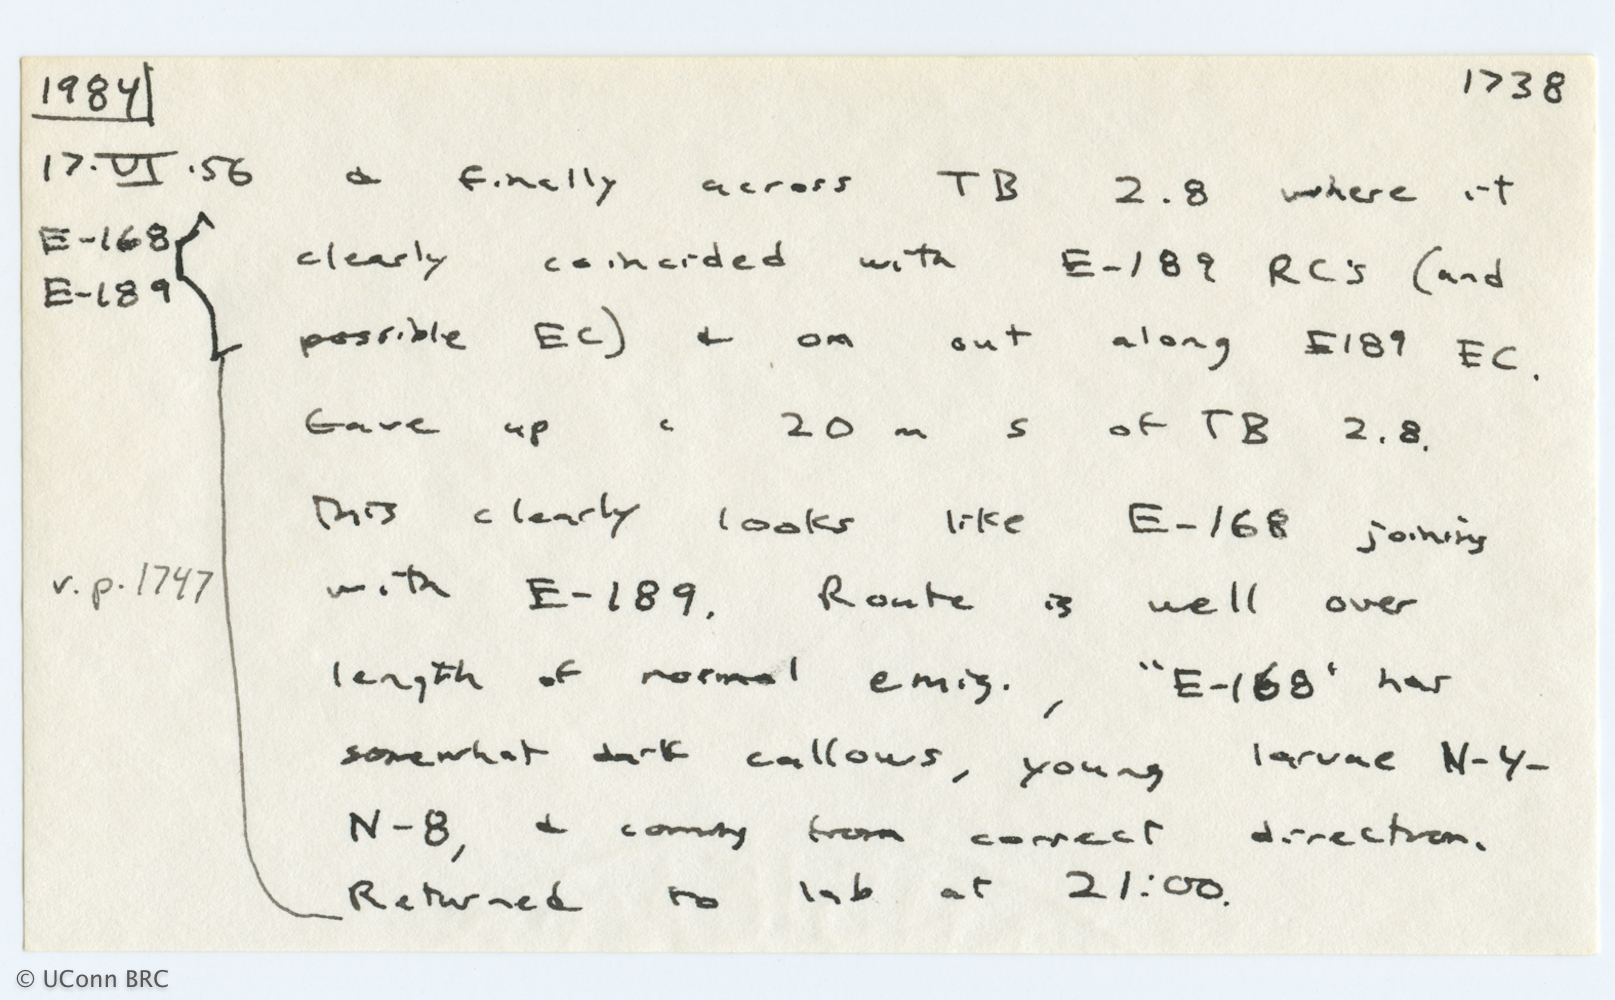 1984
1738
17.VI.56
E-168
E-189
& finally across TB 2.8 where it
clearly coincided with E-189 RC's (and
possible EC) & on out along E189 EC.
Gave up c 20 m S of TB 2.8.
This clearly looks like E-168 joining
v.p.1747
with E-189. Route is well over
length of normal emig., "E-168' has
somewhat dark callows, young larvae N-4-
N-8, & coming from correct direction.
Returned to lab at 21:00.
© UConn BRC